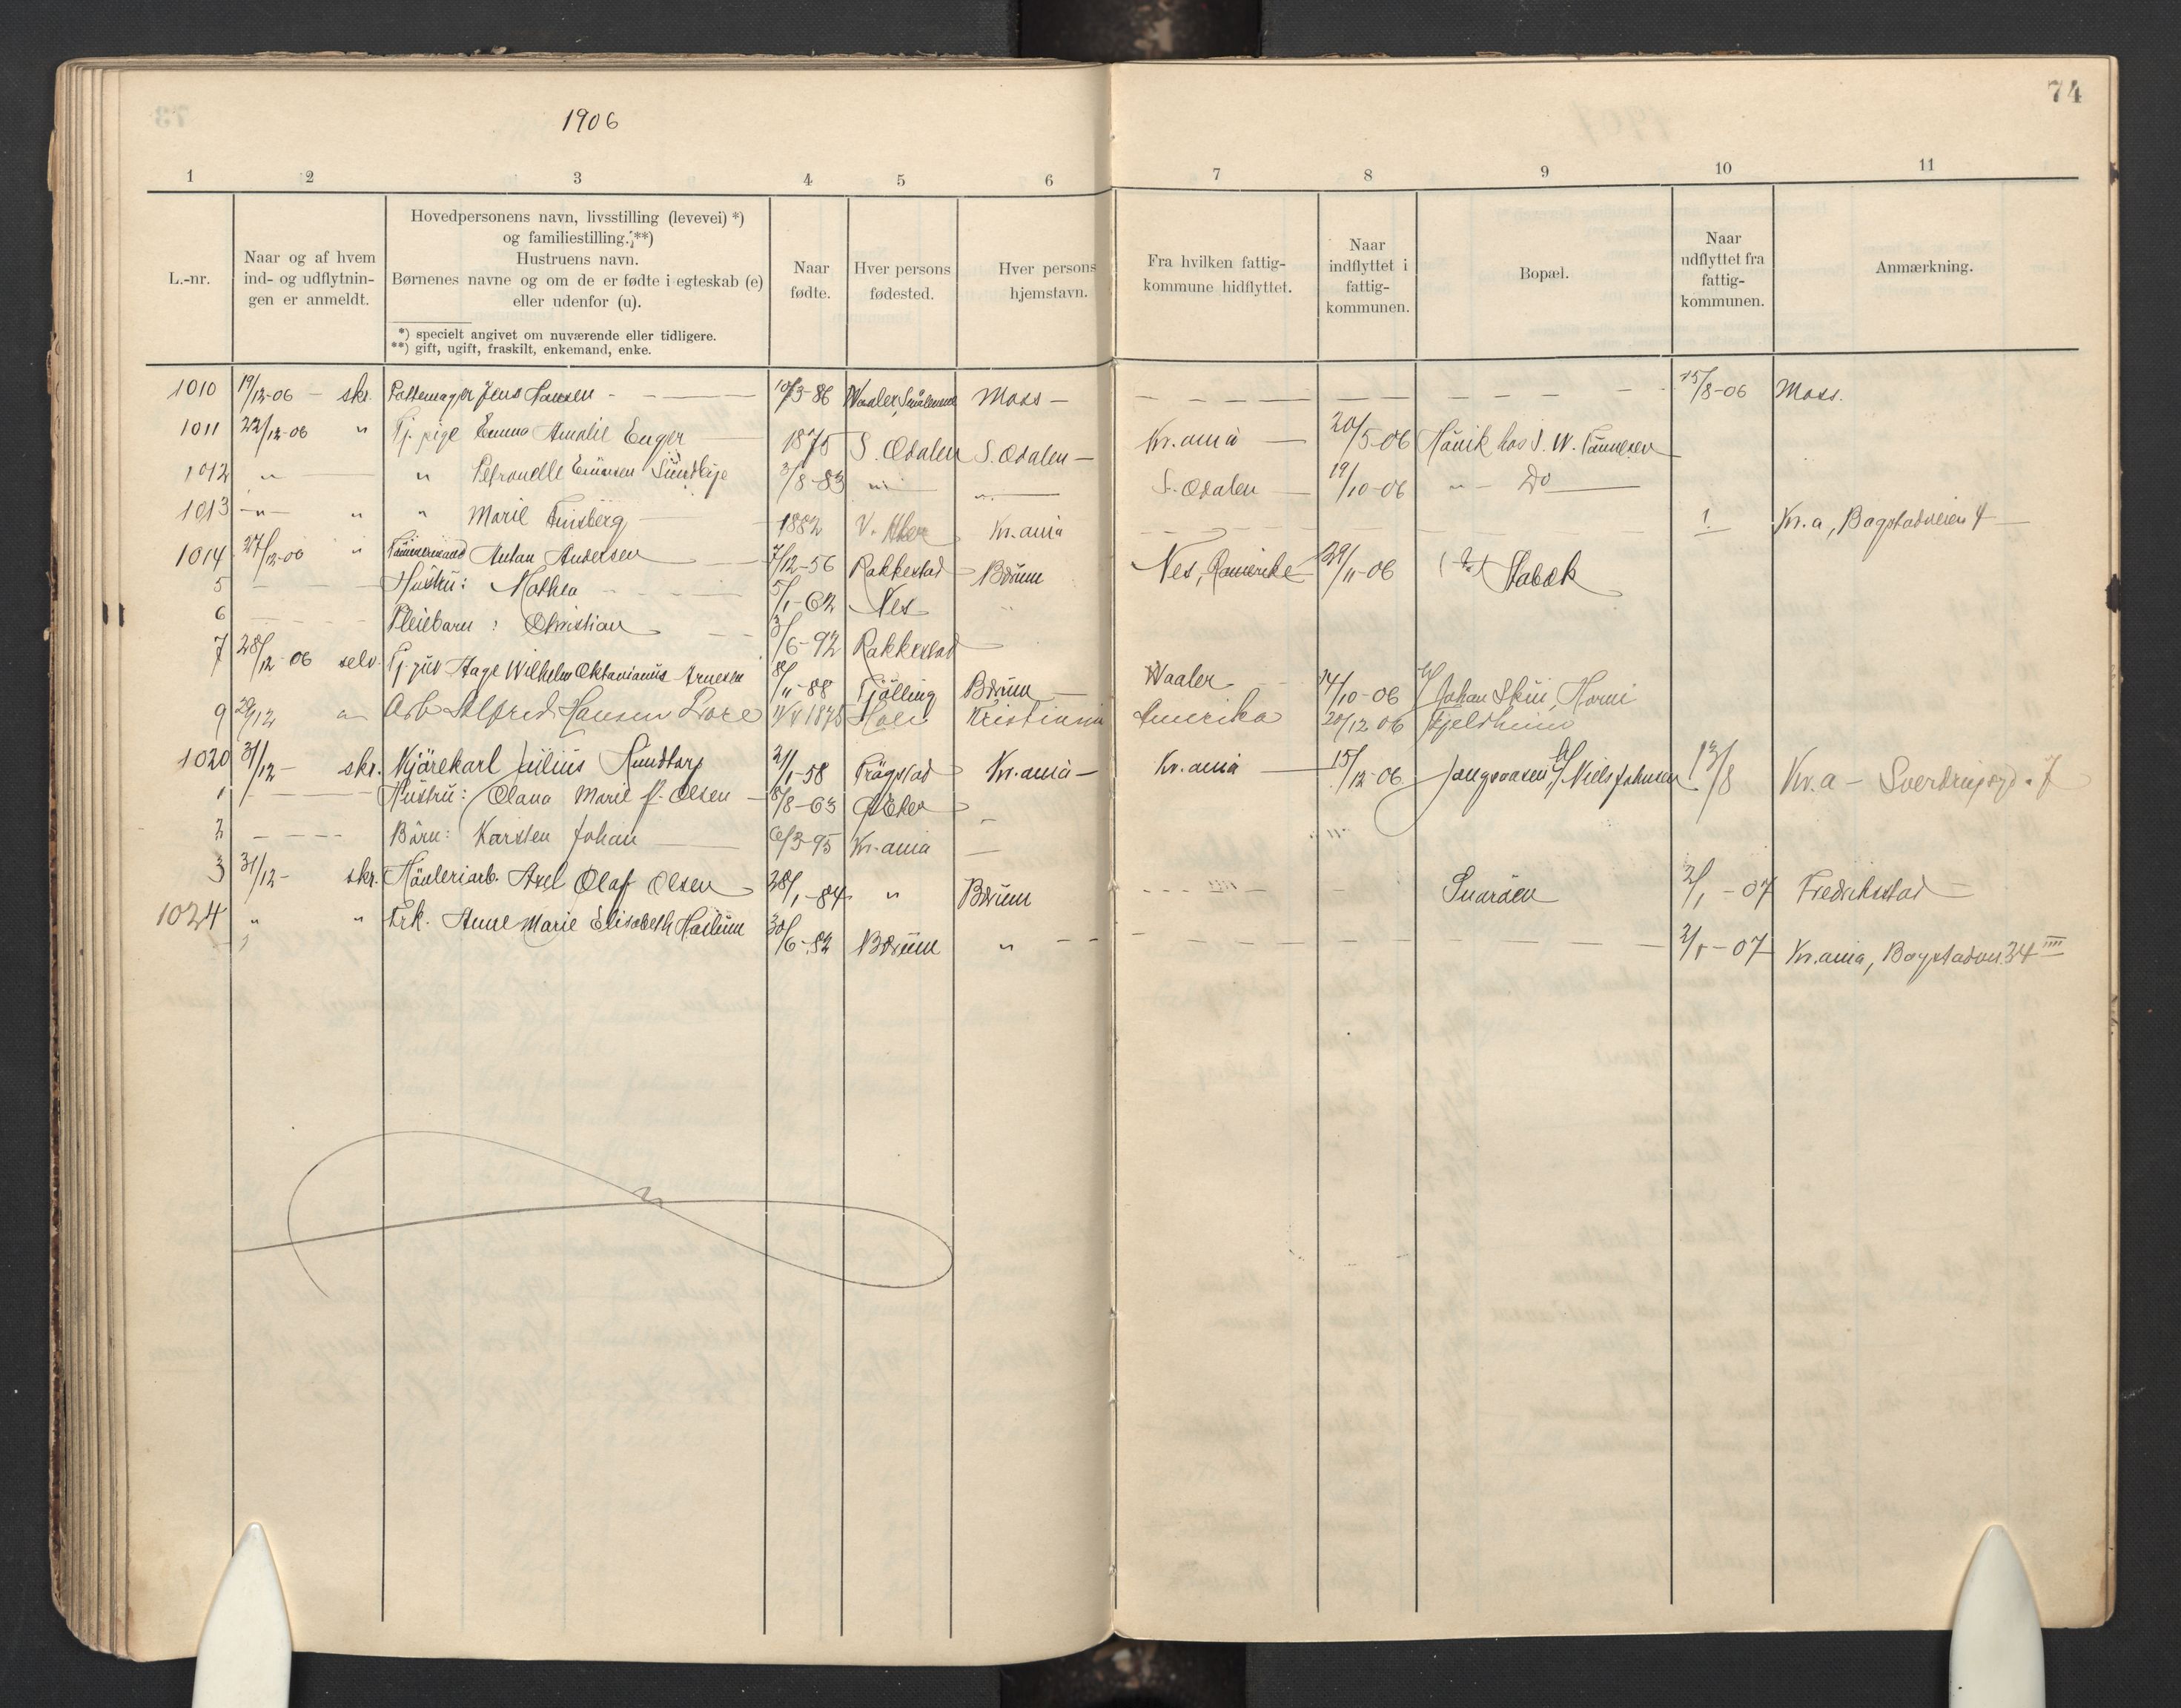 74
1906
1 2 3 4 5 6 7 8 9 10 11
L.-nr.
Naar og af hvem
ind- og udflytnin-
gen er anmeldt.
Hovedpersonens navn, livsstilling (levevei) *)
og familiestilling. **)
Hustruens navn.
Børnenes navne og om de er fødte i egteskab (e)
eller udenfor (u).
*) specielt angivet om nuværende eller tidligere.
**) gift, ugift, fraskilt, enkemand, enke.
Naar
fødte.
Hver persons
fødested.
Hver persons
hjemstavn.
Fra hvilken fattig-
kommune hidflyttet.
Naar
indflyttet i
fattig-
kommunen.
Bopæl.
Naar
udflyttet fra
fattig-
kommunen.
Anmærkning.
1010 19/12-06 – skr. Pottemager Jens Hansen – 10/3-86 Waaler, Smålenene Moss – – – – 15/8-06 Moss.
1011 22/12-06 " Tj. pige Emma Amalie Enger 1875 S. Odalen S. Odalen – Kr.ania – 20/5-06 Høvik hos S. W.
1012 " " Petronelle 3/8-83 " " S. Odalen – 19/10-06 " – Do
1013 – " – " " Marie 1882 V. Aker Kr.ania – – – Kr.a, Bogstadveien 4 –
1014 27/12-06 " Tømmermand Anton Andersen 7/12-56 Rakkestad Bærum Nes, Romerike 29/11-06 Stabæk
5 – Hustru: Mathea – 5/1-62 Nes "
6 – Pleiebarn: Christian – 3/6-92 Rakkestad –
7 28/12-06 selv. Tj. gut Aage Wilhelm Oktavianus Arnesen 8/11-88 Tjölling Bærum – Waaler – 14/10-06 Johan Skui, Horni
9 29/12 Arb Alfred Hansen 1875 Hole Kristiania Amerika 20/12 06 Fjeldheim
1020 31/12 – skr. Kjörekarl Julius 21/1-58 Trögstad Kr.ania – Kr.ania – 15/12-06 Niels Johnsen 13/8 Kr.a – Sverdrupsgd. 7
1 – Hustru: Olava Marie f. Olsen – 8/8-63 Ø. Eker –
2 – – – Børn: Karsten Johan – 6/3-95 Kr.ania – "
3 31/12 – skr. Hövleriarb. Axel Olaf Olsen 28/1-84 " Bærum – – – " – – Snaröen 2/1-07 Fredrikstad –
1024 " " Frk. Anne Marie Elisabeth 30/6-82 Bærum " – – – 2/1-07 Kr.ania, Bogstadvn. 34 IIII